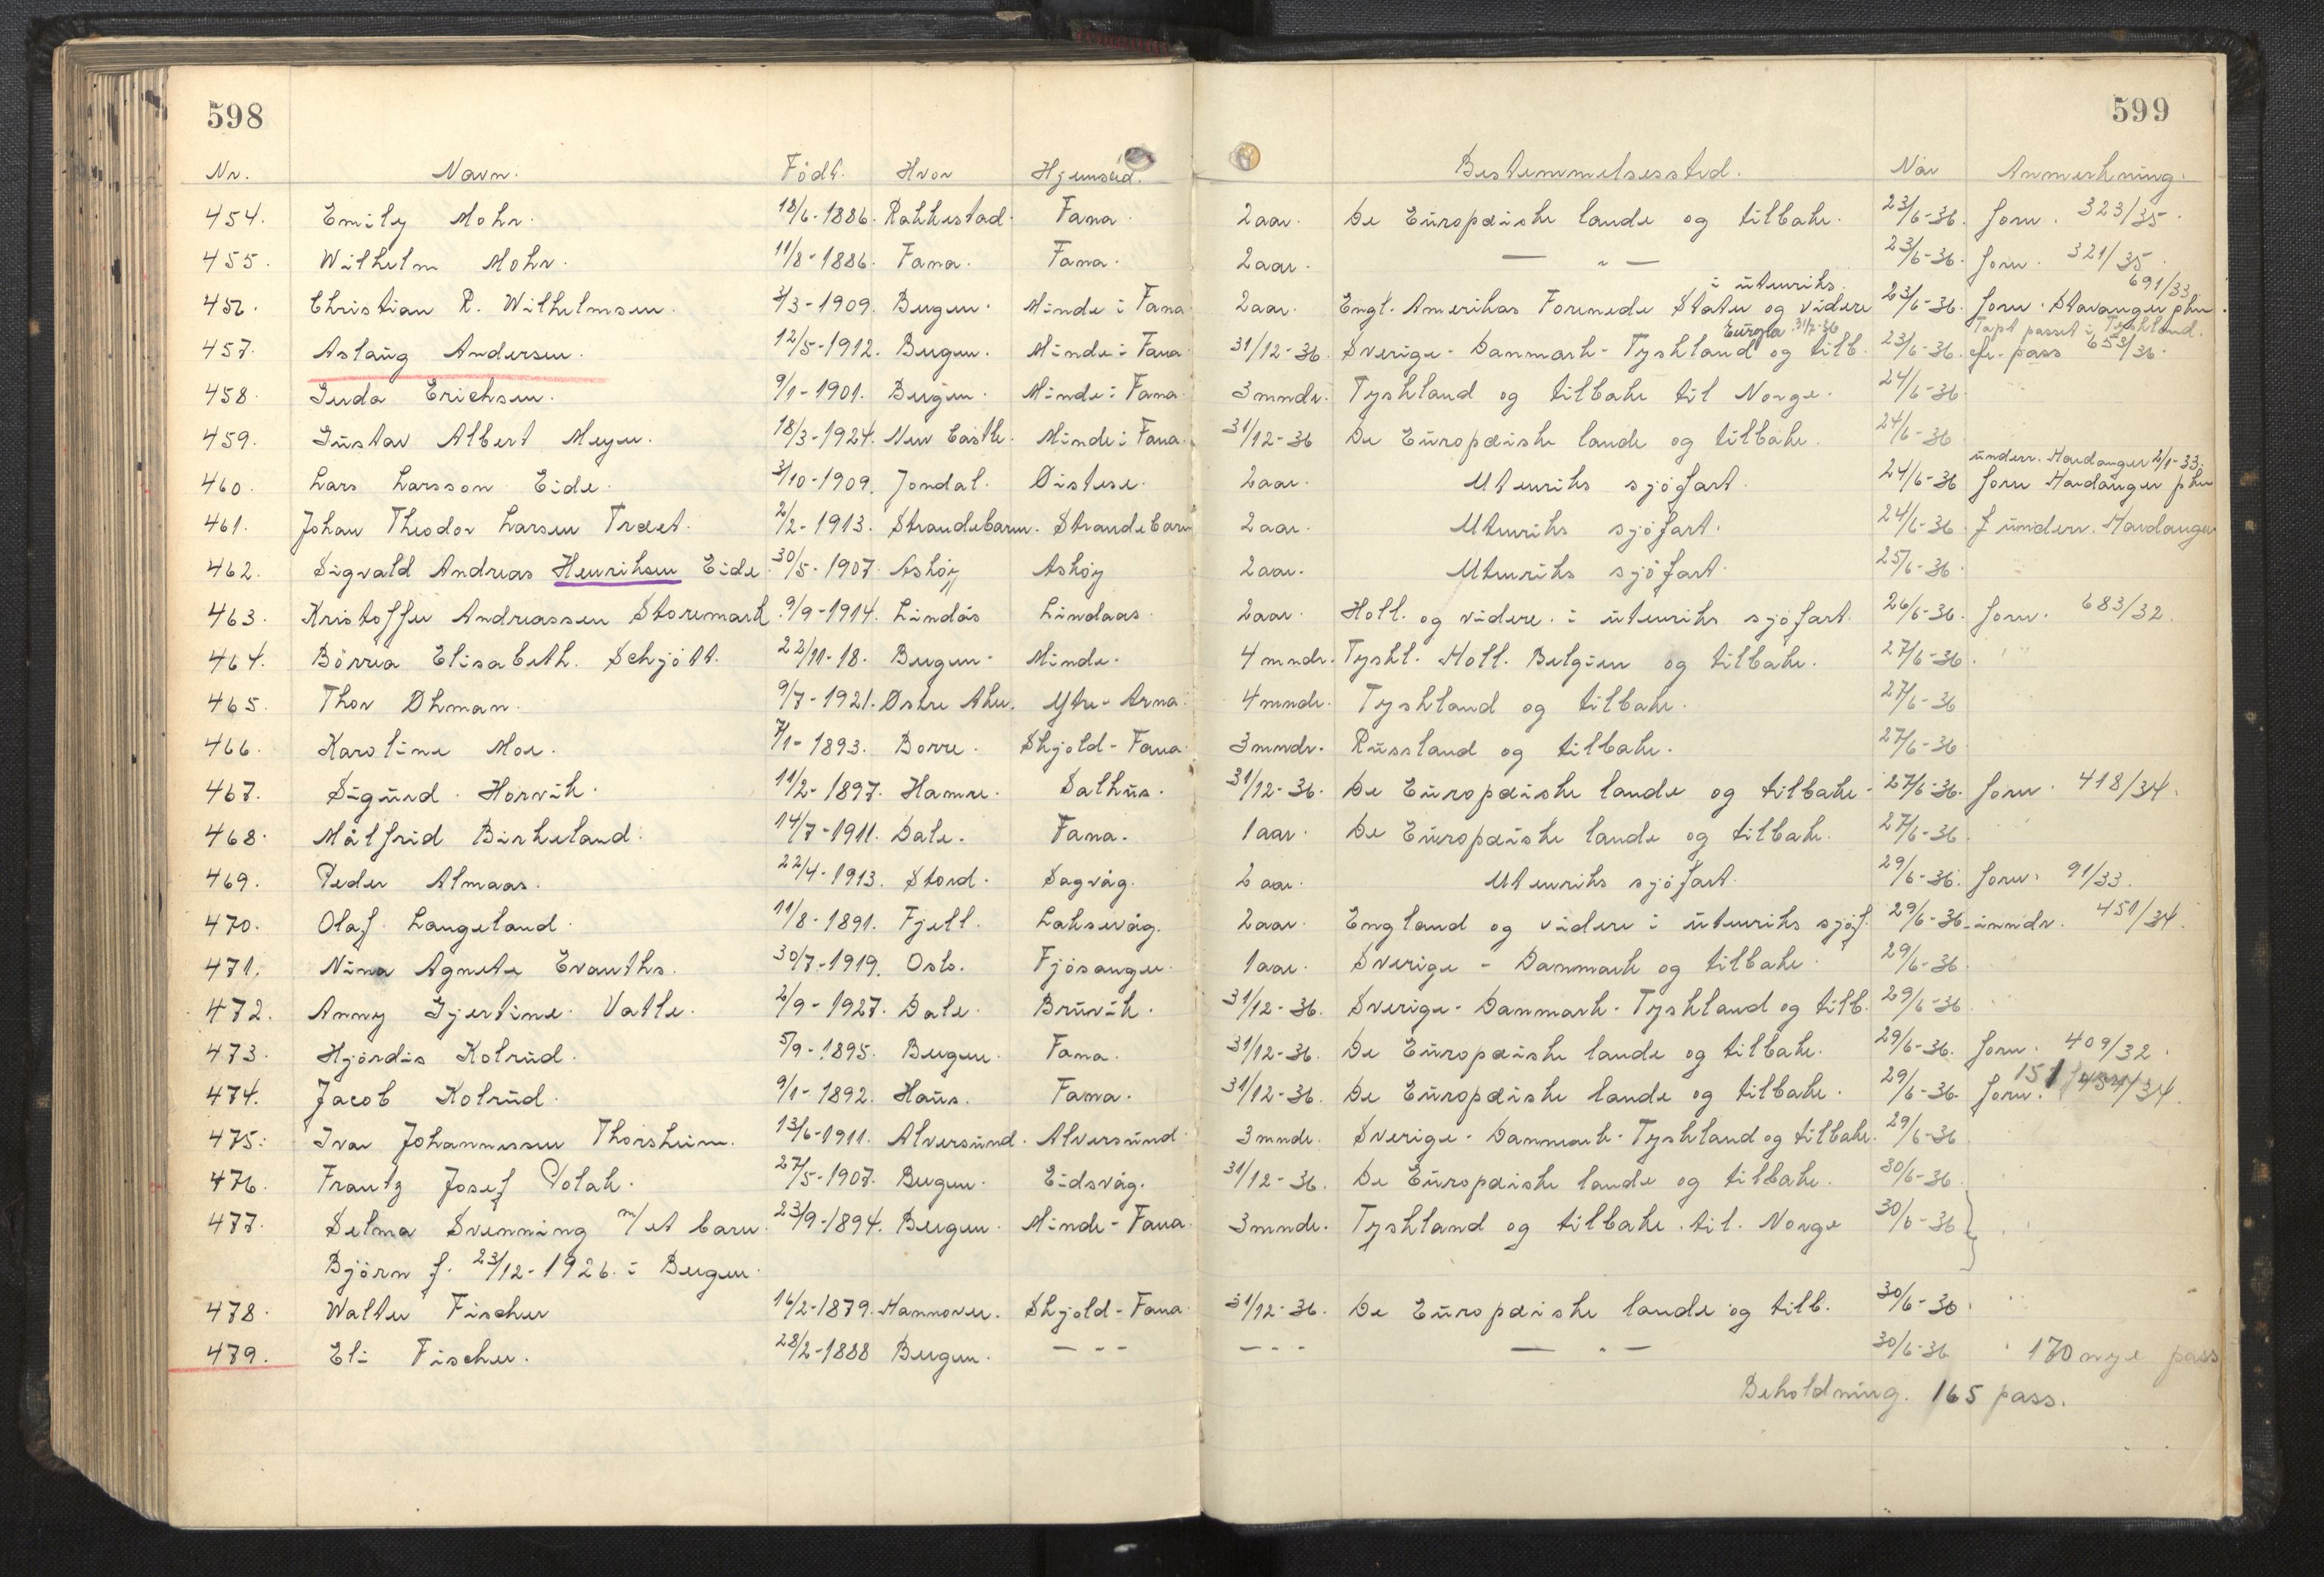 598
599
Nr. Navn. Födt. Hvor Hjemsted. Bestemmelsessted. Når Anmerkning.
454. Emily Mohr. 18/6-1886. Rakkestad. Fana. 2 aar. De Europæiske lande og tilbake. 23/6-36. forn. 323/35.
455. Wilhelm Mohr. 11/8-1886. Fana. Fana. 2 aar. — " — 23/6-36. forn. 321/35.
i utenriks. 691/33.
456. Christian R. Wilhelmsen. 3/3-1909. Bergen. Minde i Fana 2 aar. Engl. Amerikas Forenede Stater og videre 23/6-36. forn. Stavanger pkm.
Europa 31/7-36 Tapt passet i Tyskland.
457. Aslaug Andersen. 12/5-1912. Bergen. Minde i Fana 31/12-36. Sverige - Danmark - Tyskland og tilb. 23/6-36. pass 653/36.
458. Gerda Erichsen. 9/1-1901. Bergen. Minde i Fana. 3 mndr. Tyskland og tilbake til Norge. 24/6-36.
459. Gustav Albert Meyer. 18/3-1924. New Castle. Minde i Fana. 31/12-36 De Europæiske lande og tilbake. 24/6-36
underr. Hardanger 2/1-33.
460. Lars Larsson Eide. 3/10-1909. Jondal. Östese. 2 aar. Utenriks sjöfart. 24/6-36 forn Hardanger pkm
461. Johan Theodor Larsen Træet. 2/2-1913. Strandebarm. Strandebarm 2 aar. Utenriks sjöfart. 24/6-36. f underr. Hardanger
462. Sigvald Andreas Henriksen Eide 30/5-1907. Asköy Asköy 2 aar. Utenriks sjöfart. 25/6-36.
463. Kristoffer Andreassen Storemark. 9/9-1914. Lindås Lindaas. 2 aar. Holl. og videre i utenriks sjöfart. 26/6-36. forn. 683/32.
464. Börrea Elisabeth Schjött. 22/11-18. Bergen. Minde. 4 mndr. Tyskl. Holl. Belgien og tilbake. 27/6-36.
465. Thor Öhman. 9/7-1921. Östre Aker. Ytre-Arna. 4 mndr. Tyskland og tilbake. 27/6-36
466. Karoline Moe. 7/1-1893. Borre. Skjold-Fana. 3 mndr. Russland og tilbake. 27/6-36
467. Sigurd Horvik. 11/2-1897. Hamre. Salhus. 31/12-36. De Europæiske lande og tilbake. 27/6-36. forn. 418/34.
468. Målfrid Birkeland. 14/7-1911. Dale. Fana. 1 aar. De Europæiske lande og tilbake. 27/6-36.
469. Peder Almaas. 22/4-1913. Stord. Sagvåg. 2 aar. Utenriks sjöfart. 29/6-36. forn. 91/33.
470. Olaf Langeland. 11/8-1891. Fjell. Laksevåg. 2 aar. England og videre i utenriks sjöf. 29/6-36. inndr. 451/34.
471. Nina Agnete Evanths. 30/7-1919. Oslo. Fjösanger. 1 aar. Sverige - Danmark og tilbake. 29/6-36.
472. Anny Gjertine Vatle. 2/9-1927. Dale. Bruvik. 31/12-36. Sverige - Danmark - Tyskland og tilb. 29/6-36
473. Hjördis Kolrud. 5/9-1895. Bergen. Fana. 31/12-36. De Europæiske lande og tilbake. 29/6-36. forn. 409/32.
474. Jacob Kolrud. 9/1-1892. Haus. Fana. 31/12-36. De Europæiske lande og tilbake. 29/6-36. forn.
475. Ivar Johannessen Thorsheim. 13/6-1911. Alversund. Alversund. 3 mndr. Sverige - Danmark - Tyskland og tilbake. 29/6-36
476. Frantz Josef Polak. 27/5-1907. Bergen. Eidsvåg. 31/12-36. De Europæiske lande og tilbake. 30/6-36.
477. Selma Svenning m/et barn. 23/9-1894. Bergen. Minde-Fana. 3 mndr. Tyskland og tilbake til Norge 30/6-36
Björn f. 23/12-1926. i Bergen.
478. Walter Fischer 16/2-1879. Hannover. Skjold-Fana. 31/12-36. De Europæiske lande og tilb. 30/6-36.
479. Eli Fischer. 28/2-1888 Bergen. - - - - - - — " — 30/6-36 170 nye pass
Beholdning. 165 pass.